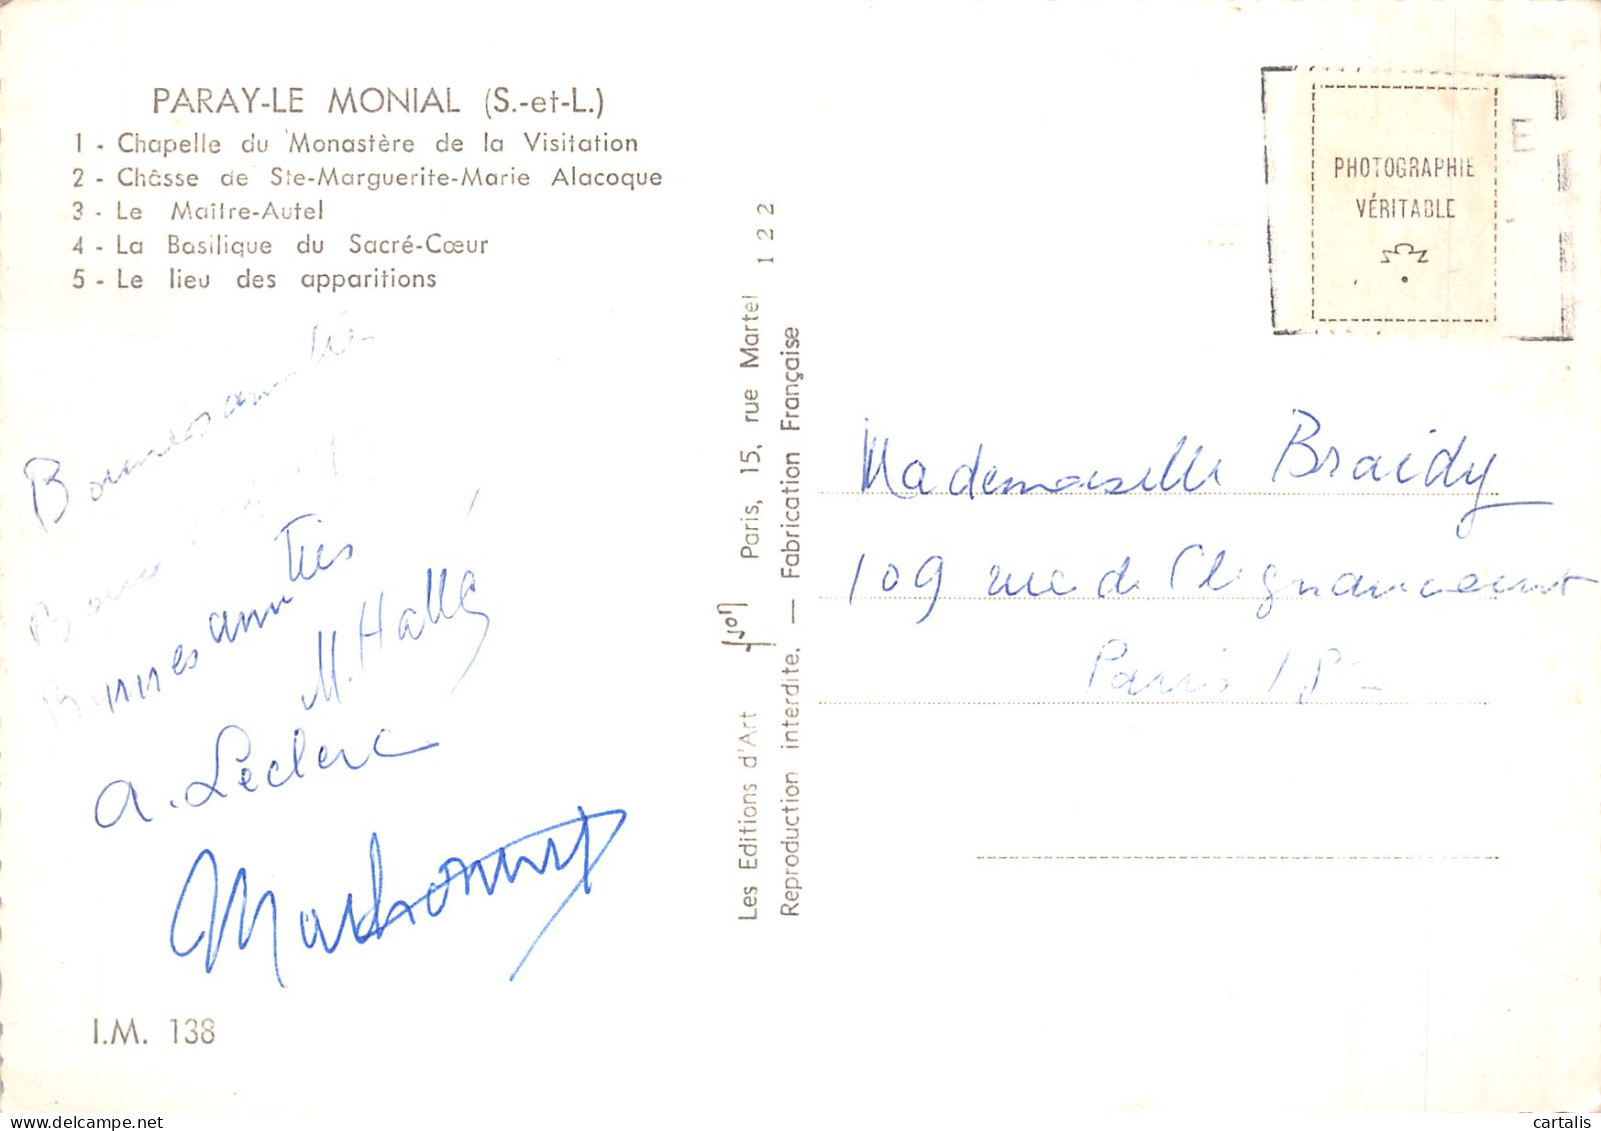 PARAY-LE MONIAL (S.-et-L.)
1 - Chapelle du Monastère de la Visitation
2 - Châsse de Ste-Marguerite-Marie Alacoque
3 - Le Maître-Autel
4 - La Basilique du Sacré-Cœur
5 - Le lieu des apparitions
Bonnes amitiés
Bonnes amitiés
M. Hallé
A. Leclerc
I.M. 138
Les Editions d'Art yvon Paris, 15, rue Martel 1 2 2
Reproduction interdite. — Fabrication Française
PHOTOGRAPHIE
VÉRITABLE
E
Mademoiselle Braidy
109 rue de Clignancourt
Paris 18
cartalis